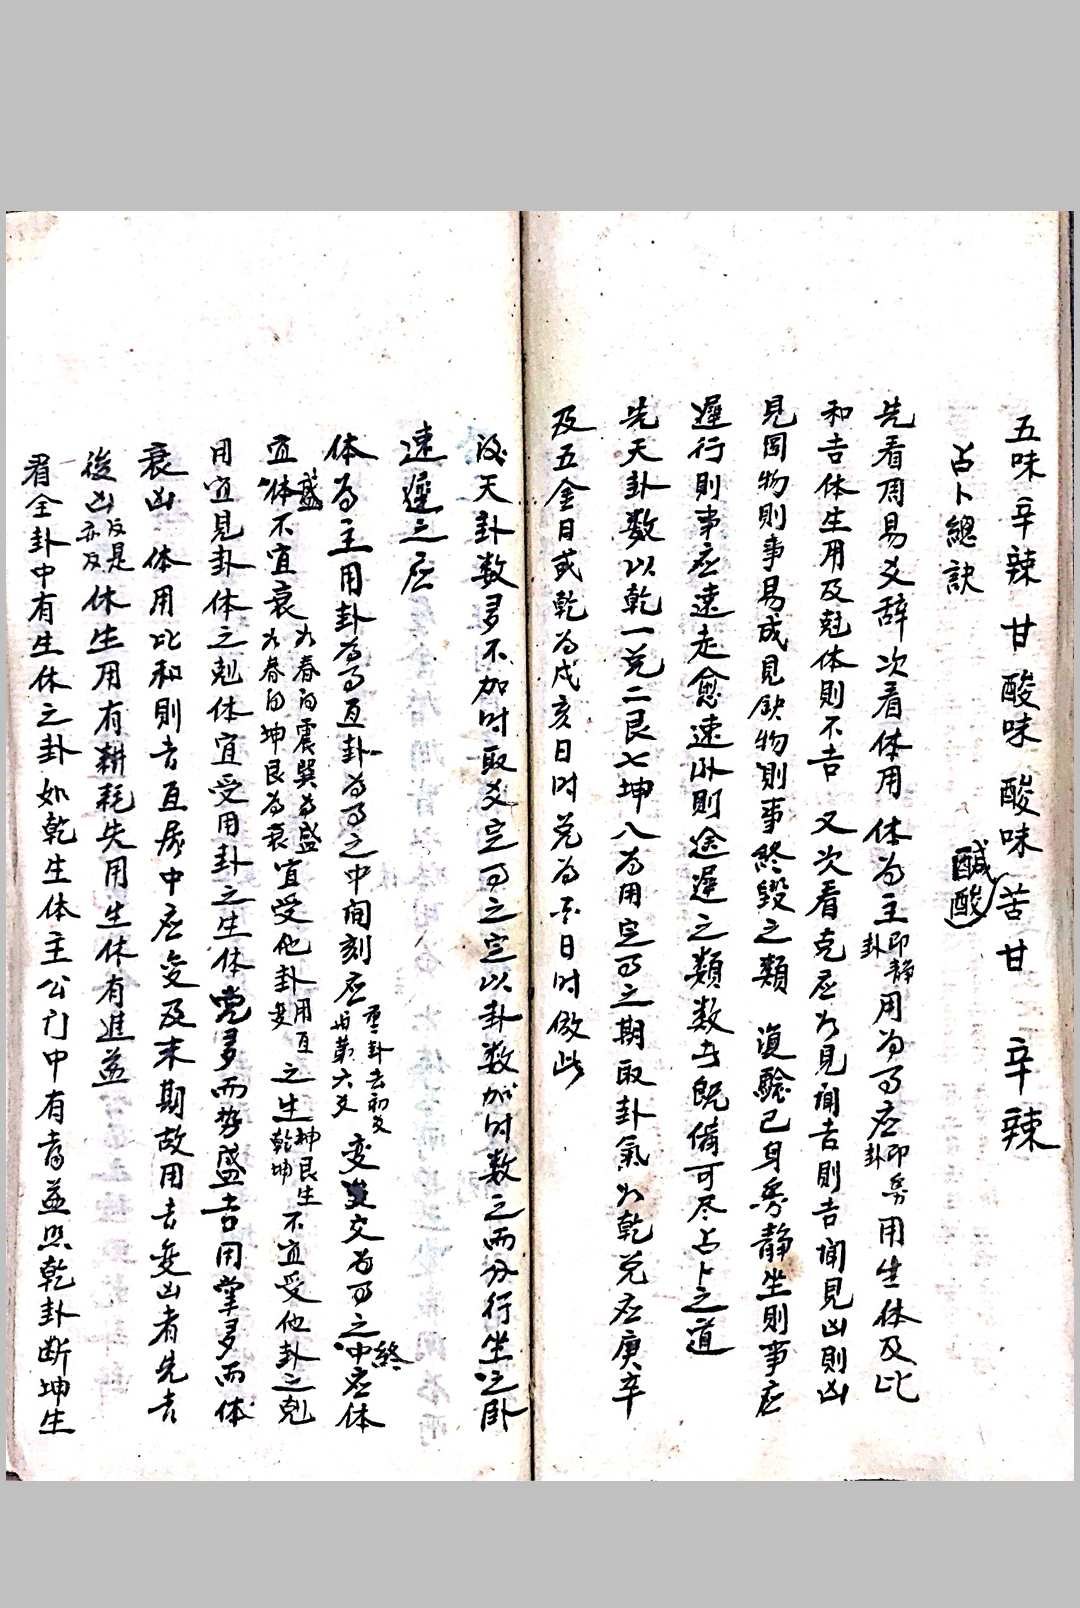 五味辛辣 甘酸味 酸味苦甘 辛辣
鹹酸
占卜總訣
先看周易爻辞次看体用 体为主即静卦用为事应即旁卦用生体及比
和吉体生用及尅体则不吉 又次看克应如見闻吉則吉闻見凶則凶
見圆物則事易成見缺物則事終毀之類 復驗已身旁静坐則事应
遲行則事应速走愈速卧則途遲之類数者既備可尽占卜之道
先天卦数以乾一兑二艮七坤八为用定事之期取卦氣如乾兑应庚辛
及五金日或乾为戌亥日时兑为酉日时倣此
後天卦数多不加时取爻定事之定以卦数加时数之而分行坐之卧
速遲之应
体为主用卦为事互卦为事之中间刻应重卦去初爻与第六爻变爻为事之終应体
宜盛体不宜衰如春的震巽为盛如春的坤艮为衰宜受他卦用互变之生坤艮生乾坤不宜受他卦之剋
用宜見卦体之剋体宜受用卦之生体党多而势盛吉用党多而体
衰凶 体用比和則吉互应中应变及末期故用吉变凶者先吉
後凶反是亦反体生用有耕耗失用生体有進益
看全卦中有生体之卦如乾生体主公门中有喜益照乾卦断坤生